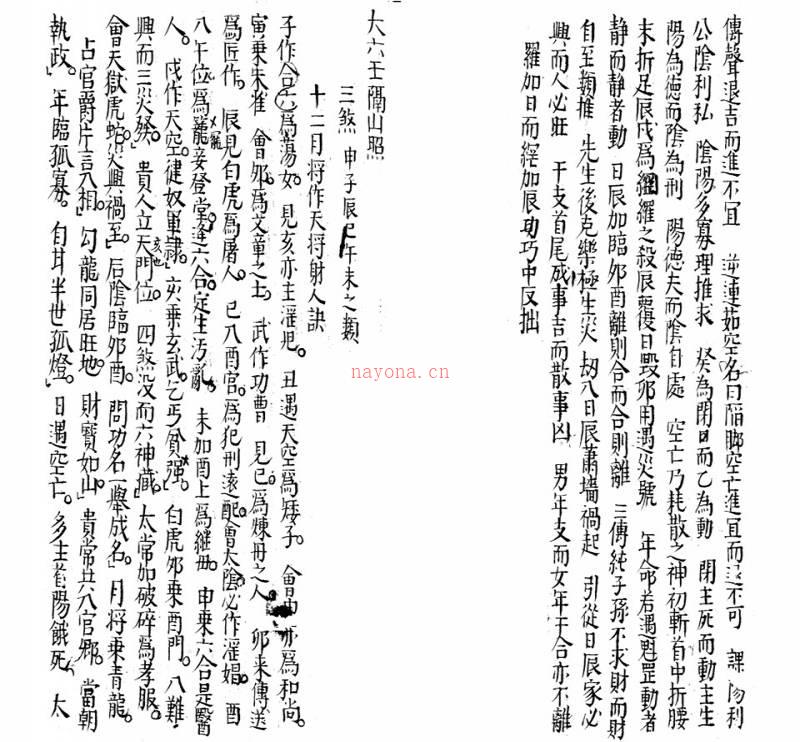 傳聲退吉而進不宜　逆連茹空名曰陷腳空亡進宜而退不可　課陽利
公陰利私　陰陽多寡理推求　癸為閉日而乙為動　閉主死而動主生
陽為德而陰為刑　陽德夫而陰自處　空亡乃耗散之神初斬首中折腰
末折足辰戌爲網羅之殺辰覆日毀卯用遇災號　年命若遇魁罡動者
静而静者動　日辰加臨卯酉離則合而合則離　三傳純子孫不求財而財
自至類推　先生後克樂極生災　刼入日辰蕭墻禍起　引從日辰家必
興而人必旺　干支首尾成事吉而散事凶　男年支而女年干合亦不離
羅加日而網加辰功巧中反拙
大六壬隔山照
三煞　申子辰巳午未之類
十二月将作天将射人訣
子作合六爲蕩女。見亥亦主淫児。丑遇天空爲矮子。會申亦爲和尚。
寅乗朱雀　會卯爲文章之士。武作功曹　見巳爲煉丹之人。卯来傳送
爲匠作。辰見白虎爲屠人。巳入酉宫爲犯刑遠配會太陰必作淫娼。酉
八午位爲寵妾登堂逢六合定生汚亂。未加酉上爲継母。申乗六合是醫
人。戌作天空健奴軍隷。亥乗玄武乞丐貧强。白虎卯乗酉門。八難
興而三災發。貴人立天門位。四煞没而六神藏。太常加破碎爲孝服。
會天獄虎蛇災興禍至。后陰臨卯酉。問功名一舉成名。月将乗青龍。
占官爵片言入相。勾龍同居旺地。財寶如山。貴常共入官鄉。當朝
執政。年臨孤寡。自甘半世孤燈。日遇空亡。多主首陽餓死。太
nayona.cn